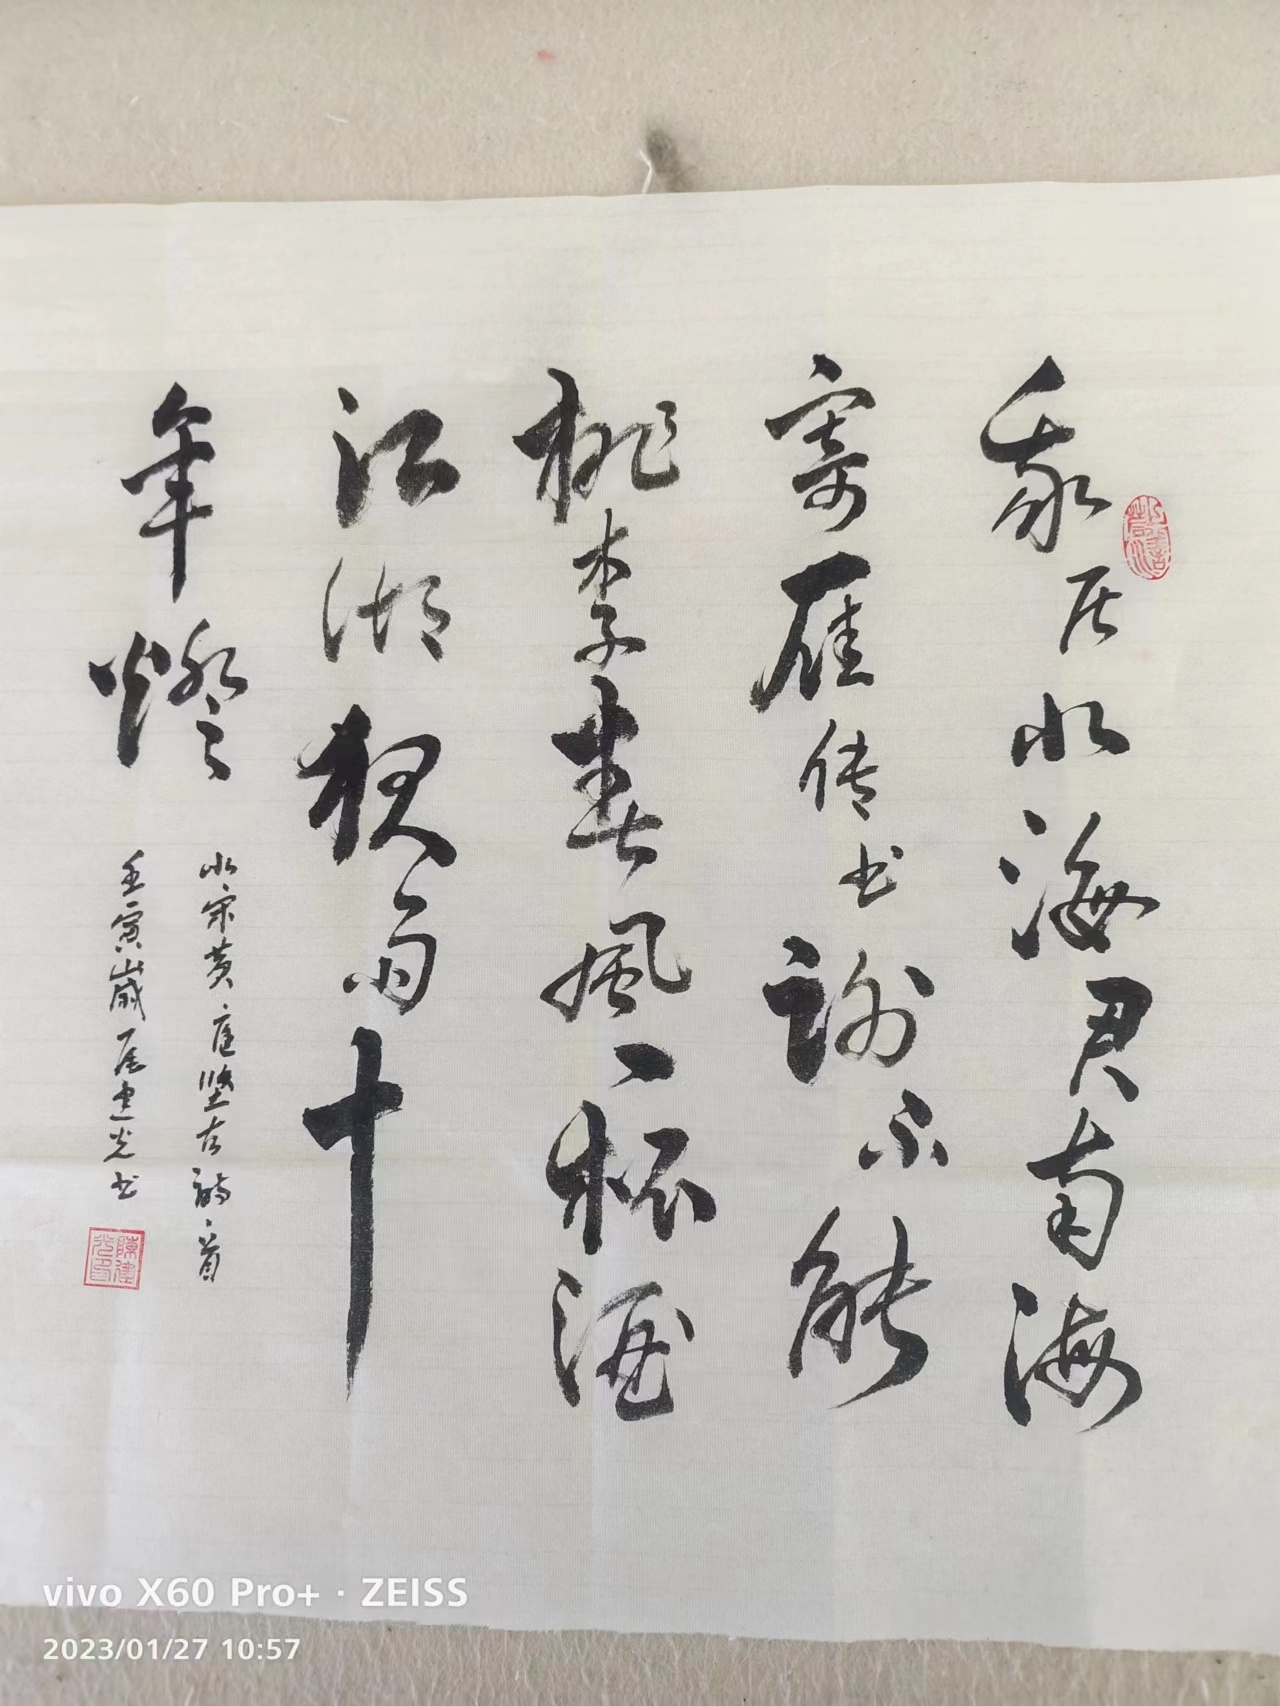 我居北海君南海
寄雁传书謝不能
桃李春風一杯酒
江湖夜雨十
年燈
北宋黄庭堅古詩一首
壬寅歲 建光书
陳建光印
vivo X60 Pro+ · ZEISS
2023/01/27 10:57